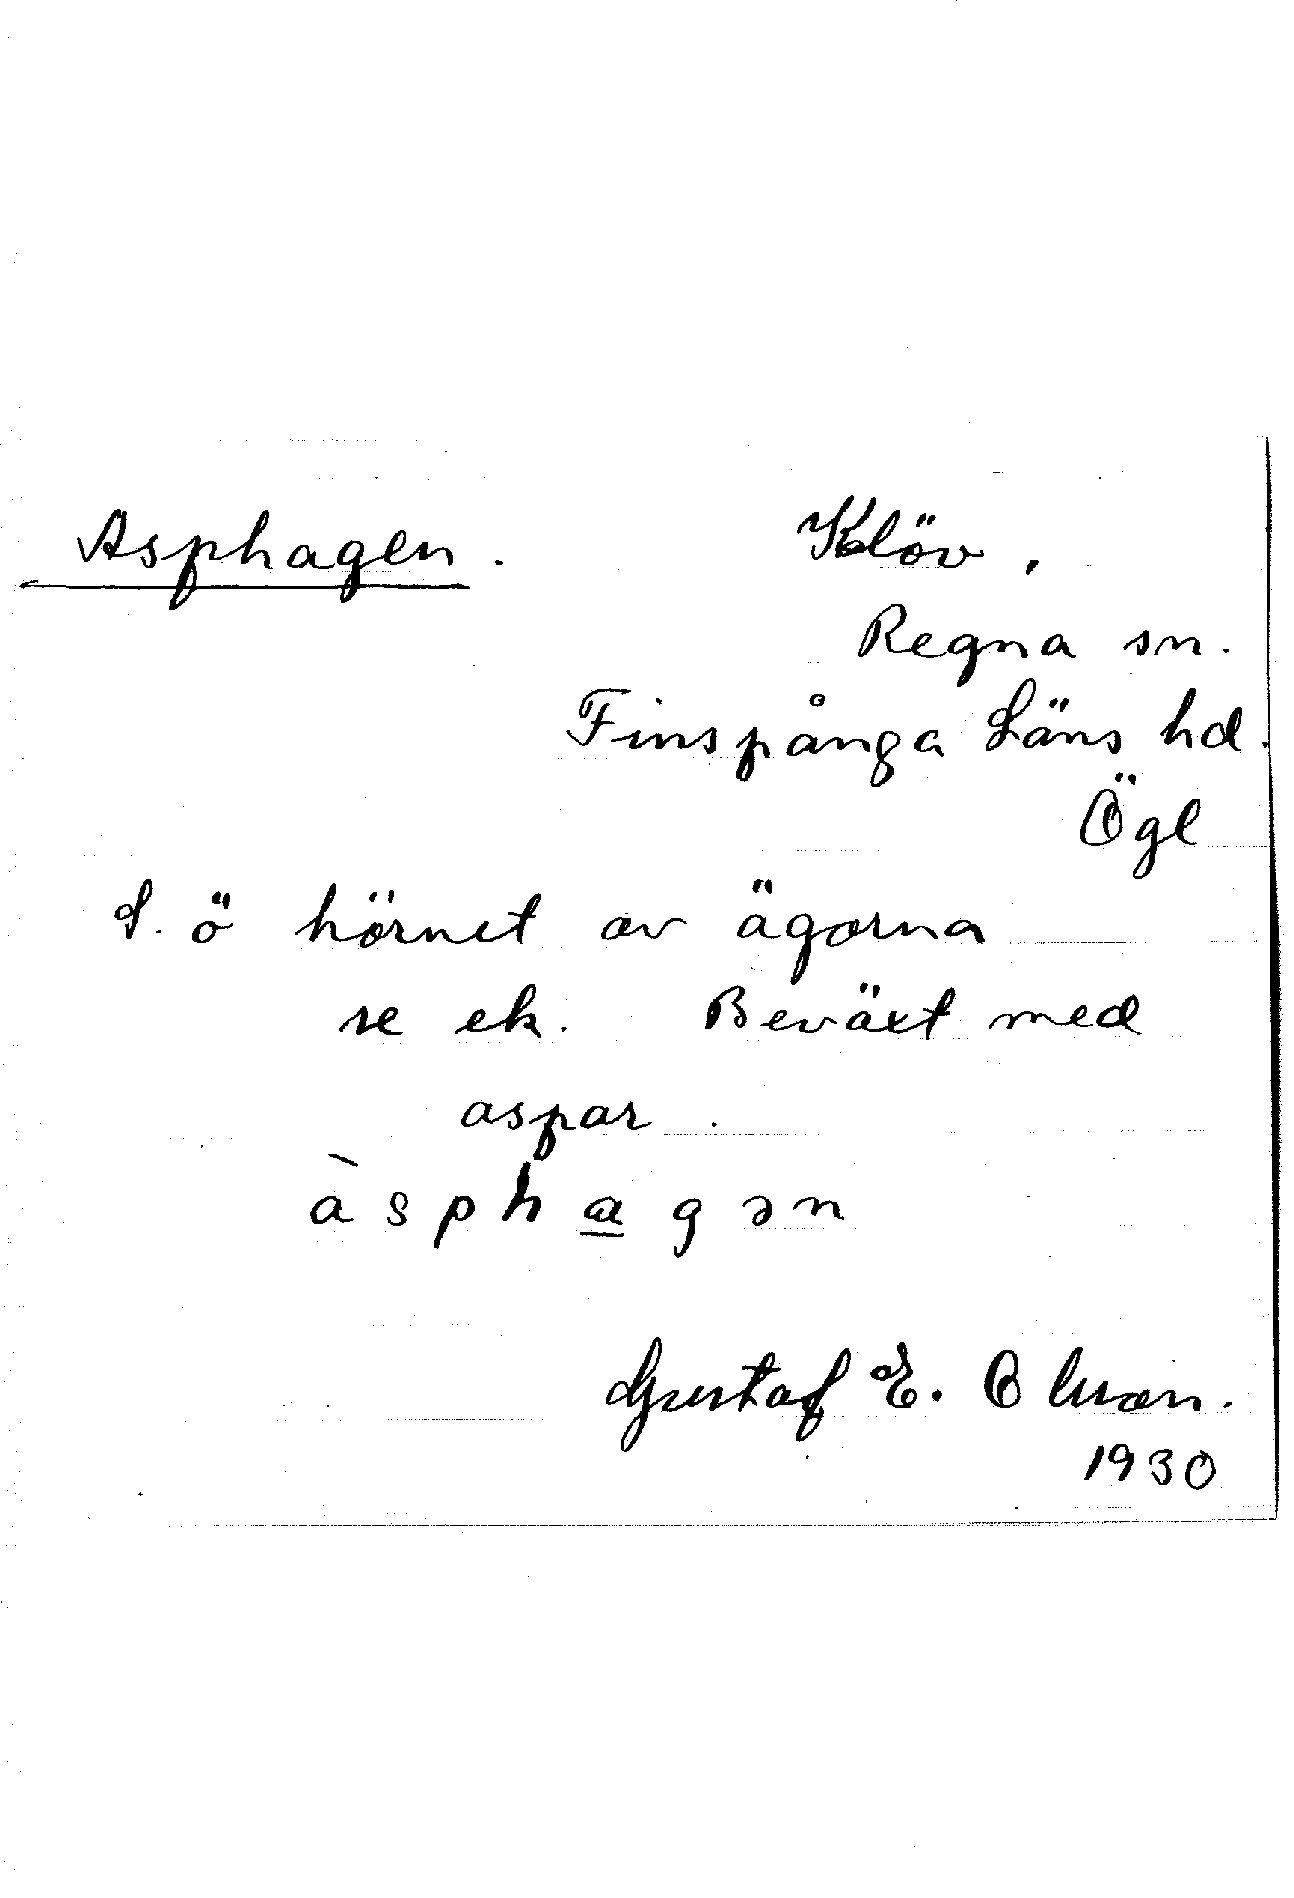 Asphagen. Klöv,
Regna sn.
Finspånga Läns hd.
Ögl
S. ö hörnet av ägorna
se ek. Beväxt med
aspar.
àsphagən
Gustaf E. Olsson.
1930